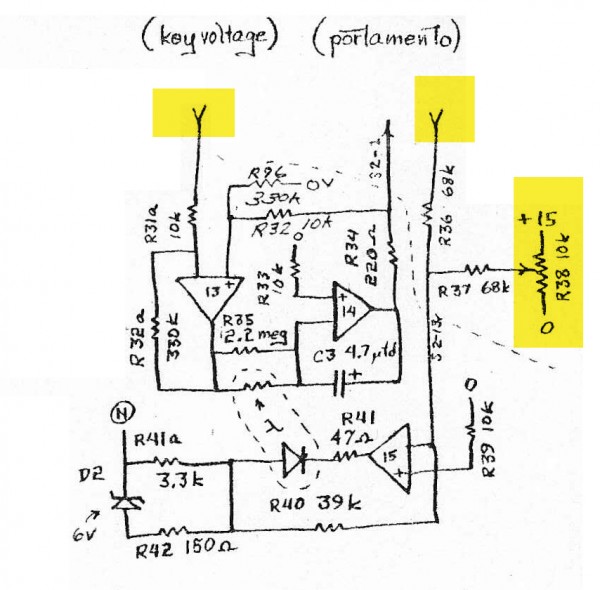 (key voltage) (portamento)
R96
330k
0V
S2-1
R36 68k
R31a
10k
R32 10k
+15
R38 10k
0
0
R33
10k
R34
220Ω
13
+
14
+
R37 68k
R32a
330k
R35
2.2 meg
C3 4.7 µfd
+
S2-13c
N
λ
0
R39 10k
R41a
3.3k
R41
47Ω
15
+
D2
6V
R40 39k
R42 150Ω